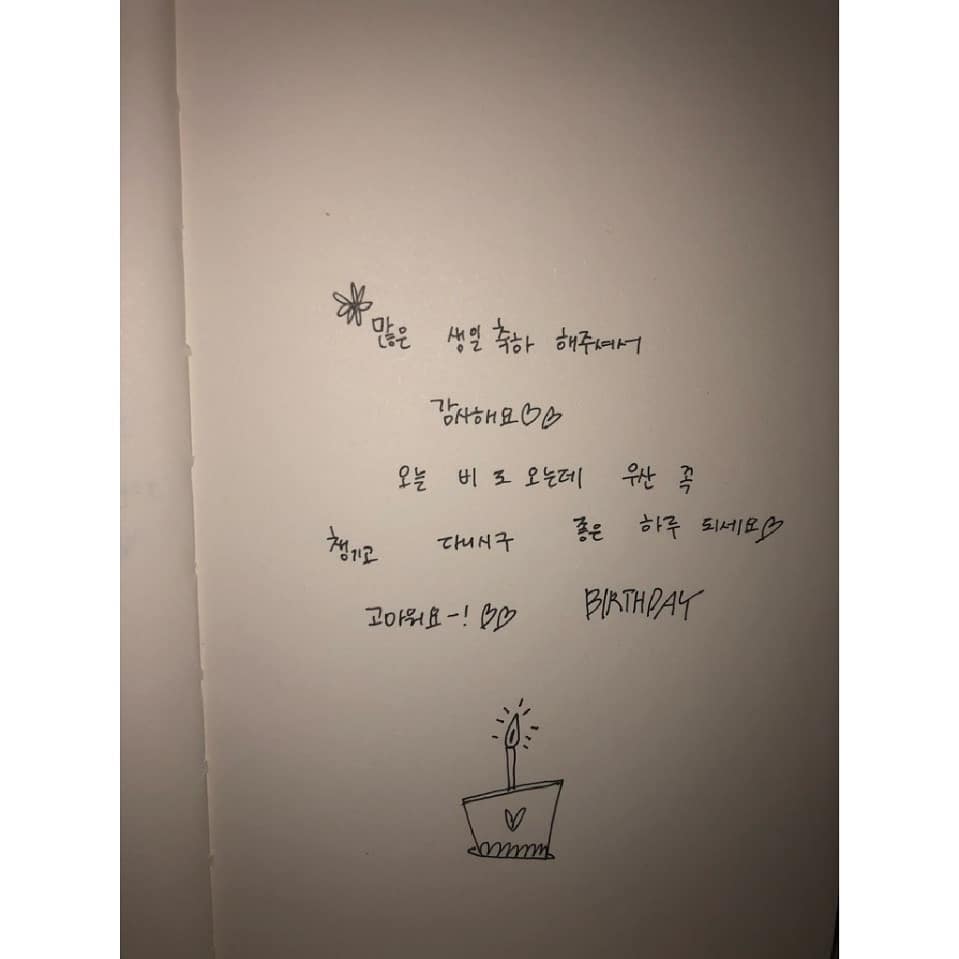 많은 생일축하 해주셔서
감사해요♡♡
오늘 비도 오는데 우산 꼭
챙기고 다니시구 좋은 하루 되세요♡
고마워요-! ♡♡ BIRTHDAY